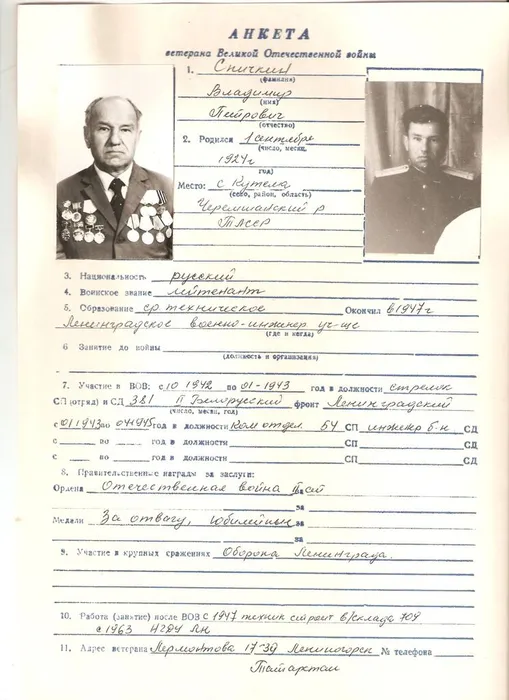 АНКЕТА
ветерана Великой Отечественной войны
1. Сничкин
(фамилия)
Владимир
(имя)
Петрович
(отчество)
2. Родился 1 сентября
(число, месяц,
1924 г
год)
Место: с Кутема
(село, район, область)
Черемшанский р
ТАССР
3. Национальность русский
4. Воинское звание лейтенант
5. Образование ср техническое Окончил в 1947 г
Ленинградское военно-инженер уч-ще
(где и когда)
6 Занятие до войны
(должность и организация)
7. Участие в ВОВ: с 10 1942 по 01-1943 год в должности стрелок
СП (отряд) и СД 381 II Белорусский фронт Ленинградский
(число, месяц, год)
с 01/1943 по 04/1945 год в должности Ком отдел. 64 СП инженер б-н СД
с по год в должности СП СД
с по год в должности СП СД
8. Правительственные награды за заслуги:
Ордена Отечественная война за
за
Медали За отвагу, юбилейные за
за
9. Участие в крупных сражениях Оборона Ленинграда.
10. Работа (занятие) после ВОВ с 1947 техник строит в/склада 709
с 1963 НГДУ ЛН
11. Адрес ветерана Лермонтова 17-39 Лениногорск № телефона
Татарстан